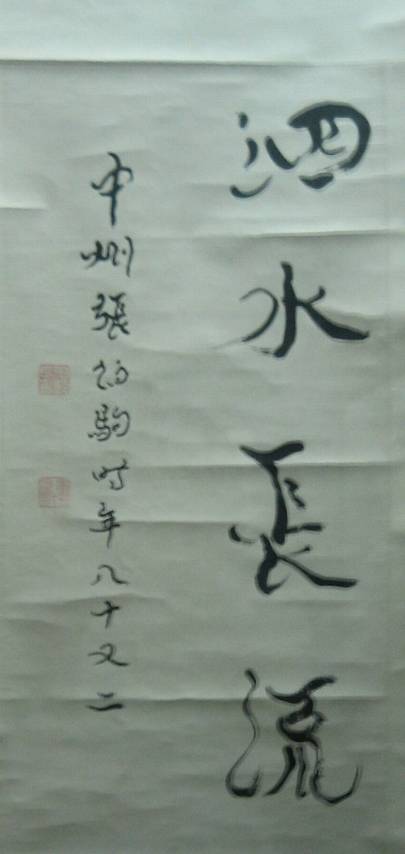 泗水長流
中州張伯駒时年八十又二